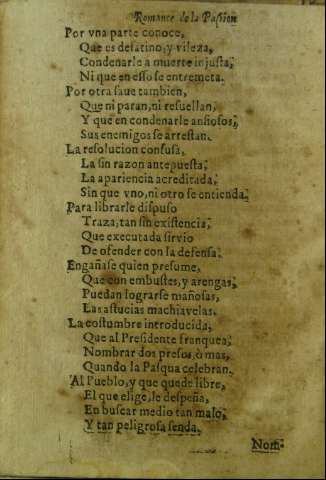 Romance de la Passion
Por vna parte conoce,
Que es desatino, y vileza,
Condenarle a muerte injusta,
Ni que en esso se entremeta.
Por otra saue tambien,
Que ni paran, ni resuellan,
Y que en condenarle ansiosos,
Sus enemigos se arrestan.
La resolucion confusa,
La sin razon antepuesta,
La apariencia acreditada,
Sin que vno, ni otro se entienda.
Para librarle dispuso
Traza, tan sin existencia,
Que executada sirvio
De ofender con la defensa.
Engañase quien presume,
Que con embustes, y arengas,
Puedan lograrse mañosas,
Las astucias machiavelas.
La costumbre introducida,
Que al Presidente franquea,
Nombrar dos presos, ò mas,
Quando la Pasqua celebran.
Al Pueblo, y que quede libre,
El que elige, le despeña,
En buscar medio tan malo,
Y tan peligrosa senda.
Nom-